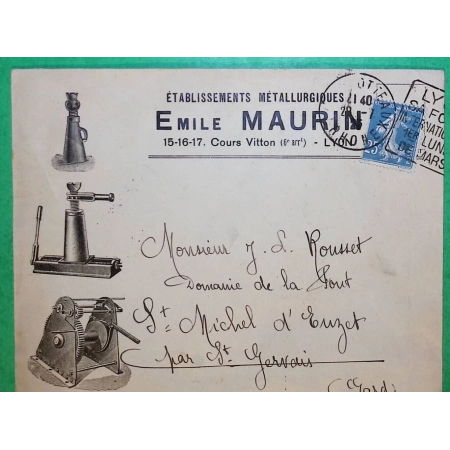 ÉTABLISSEMENTS MÉTALLURGIQUES
EMILE MAURIN
15-16-17. Cours Vitton (6e ARRt) - LYON
21 40
RHONE
LY
FO
NATIO
LUN
MARS
25
Monsieur J. L. Rousset
Domaine de la Pont
St Michel d'Euzet
par St Gervais
(Gard)